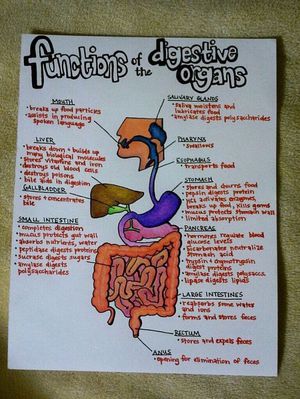 functions of the digestive organs
MOUTH
• breaks up food particles
• assists in producing
spoken language
SALIVARY GLANDS
• saliva moistens and
lubricates food
• amylase digests polysacchrides
PHARYNX
• swallows
ESOPHAGUS
• transports food
LIVER
• breaks down + builds up
many biological molecules
• stores vitamins and iron
• destroys old blood cells
• destroys poisons
• bile aids in digestion
STOMACH
• stores and churns food
• pepsin digests protein
• HCl activates enzymes
breaks up food, kills germs
• mucus protects stomach wall
• limited absorption
GALLBLADDER
• stores + concentrates
bile
PANCREAS
• hormones regulate blood
glucose levels
• bicarbonates neutralize
stomach acid
• trypsin + chymotrypsin
digest proteins
• amylase digests polysaccs
• lipase digests lipids
SMALL INTESTINE
• completes digestion
• mucus protects gut wall
• absorbs nutrients, water
• peptidase digests proteins
• sucrase digests sugars
• amylase digests
polysaccharides
LARGE INTESTINES
• reabsorbs some water
and ions
• forms and stores feces
RECTUM
• stores and expels feces
ANUS
• opening for elimination of feces